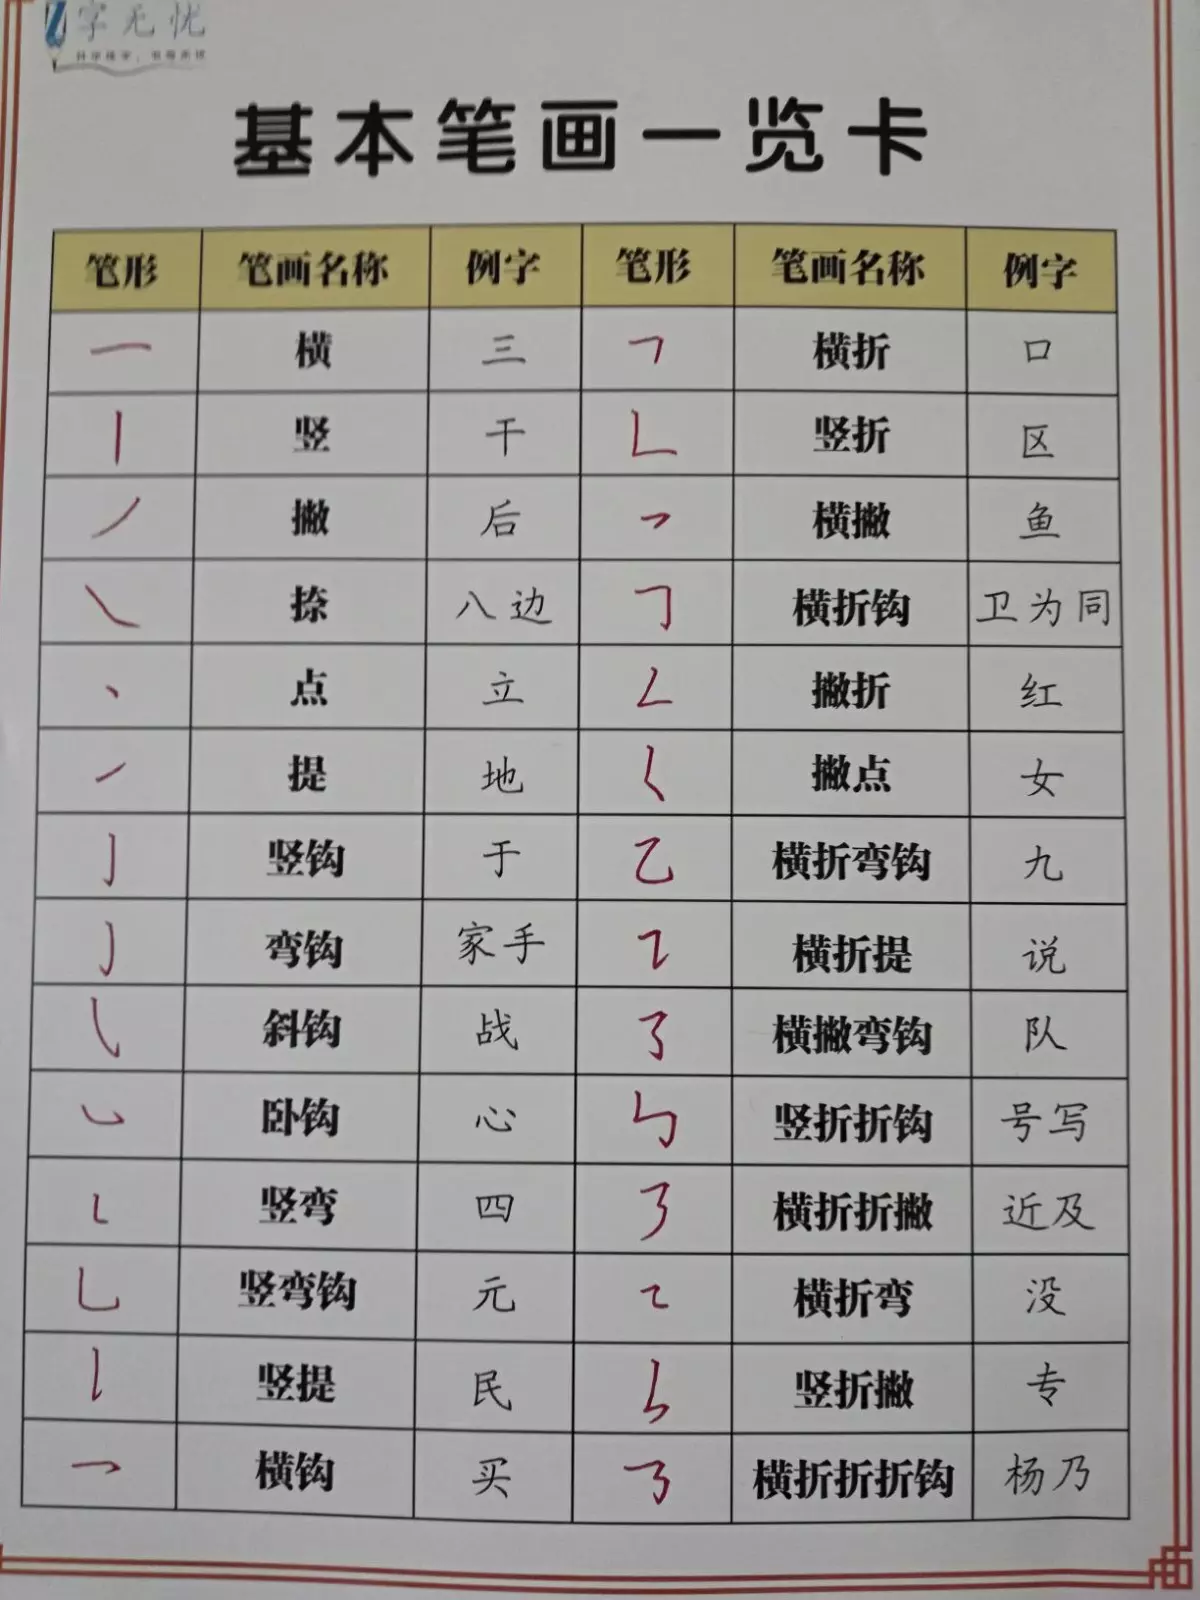 字无忧
基本笔画一览卡
笔形 笔画名称 例字 笔形 笔画名称 例字
一 横 三 ㇕ 横折 口
丨 竖 干 ㇗ 竖折 区
丿 撇 后 ㇇ 横撇 鱼
㇏ 捺 八边 ㇆ 横折钩 卫为同
丶 点 立 ㇜ 撇折 红
㇀ 提 地 ㇛ 撇点 女
亅 竖钩 于 乙 横折弯钩 九
㇁ 弯钩 家手 ㇊ 横折提 说
㇂ 斜钩 战 ㇌ 横撇弯钩 队
㇃ 卧钩 心 ㇉ 竖折折钩 号写
㇄ 竖弯 四 ㇋ 横折折撇 近及
乚 竖弯钩 元 ㇍ 横折弯 没
㇙ 竖提 民 ㇞ 竖折撇 专
乛 横钩 买 ㇡ 横折折折钩 杨乃